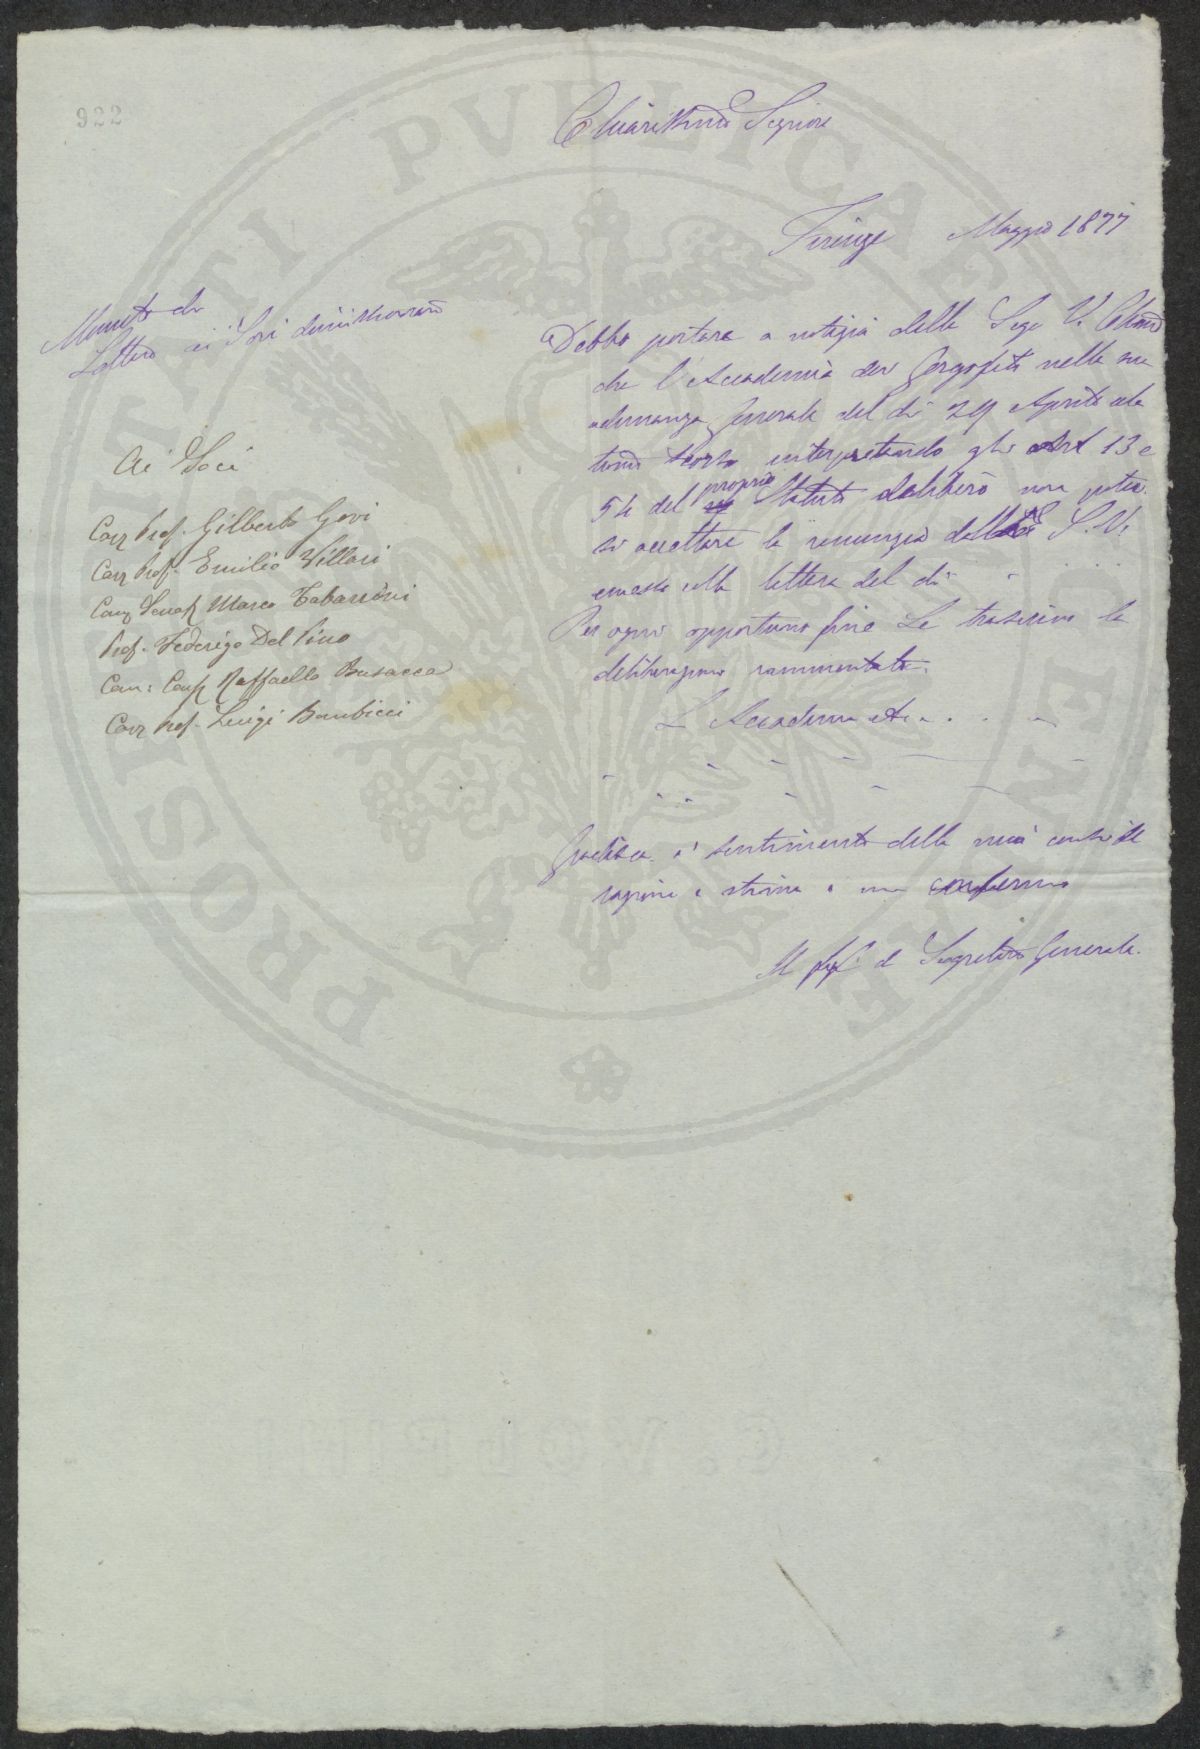 922
Chiarissimo Signore
Firenze Maggio 1877
Minuta di
Lettera ai Soci dimissionari
Ai Soci
Cav Prof. Gilberto Govi
Cav Prof. Emilio Villari
Comm Senat Marco Tabarrini
Prof. Federigo Del Pino
Com: Consr Raffaello Busacca
Cav Prof. Luigi Bombicci
Debbo portare a notizia della Sigr V. Chiarma
che l'Accademia dei Georgofili nella sua
adunanza Generale del dì 29 Aprile ul
timo scorso interpretando gli Art 13 e
54 del proprio Statuto deliberò non poter
si accettare la renunzia della S.V.
emessa colla lettera del dì
Per ogni opportuno fine Le trascrivo la
deliberazione rammentata:
L'Accademia
Gradisca i sentimenti della mia conside
razione e stima e mi confermo
Il Segretario Generale.
PROSPERITATI PVBLICAE AVGENDAE
C. VOLPINI